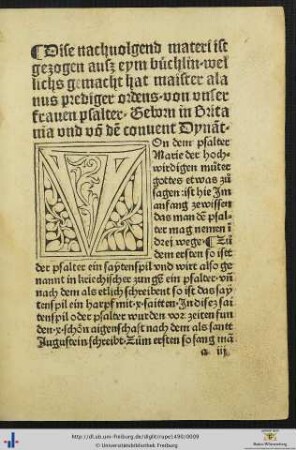 ¶Dise nachuolgend materi ist
gezogen ausz eym büchlin·wel
lichs gemacht hat maister ala
nus prediger ordens·von vnser
frauen psalter·Geborn in Brita
nia vnd vō dē conuent Dynāt·
VOn dem psalter
Marie der hoch-
wirdigen můter
gottes etwas zů
sagen:ist hie Im
anfang zewissen
das man dē psal-
ter mag nennen ī
drei wege·¶Zů
dem ersten so istt
der psalter ein saytenspil vnd wirt also ge
nannt in kriechischer zungē ein psalter·vñ
nach dem als etlich schreibent so ist das say
tenspil ein harpf mit·x·saitten·In disez sai
tenspil oder psalter wurden vor zeiten fun
den·x·schön aigenschaft nach dem als sant
Augustein schreibt·Zům ersten so sang mā
a iij
http://dl.ub.uni-freiburg.de/diglit/rupe1490/0009
© Universitätsbibliothek Freiburg
Baden-Württemberg